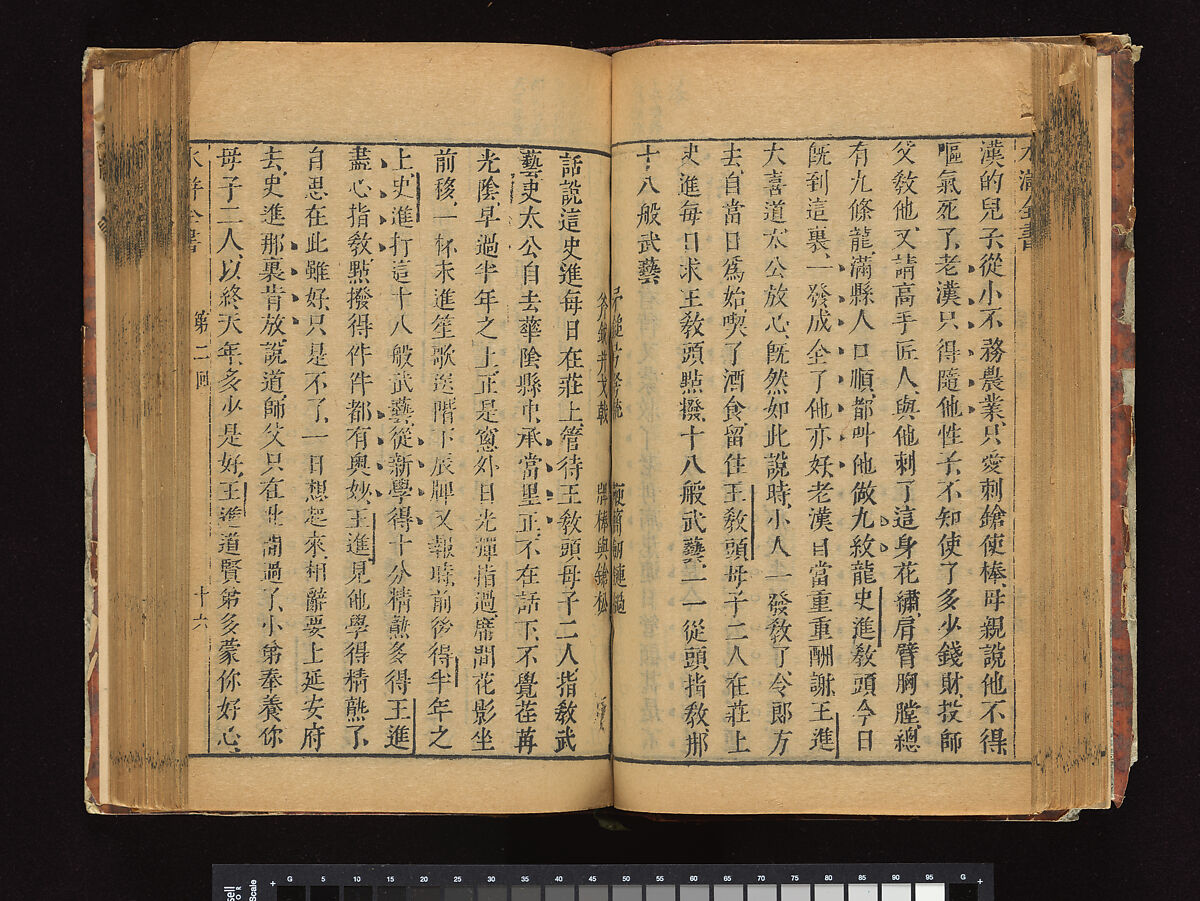 水滸全書
漢的兒子從小不務農業只愛刺鎗使棒母親說他不得
嘔氣死了老漢只得隨他性子不知使了多少錢財投師
父教他又請高手匠人與他刺了這身花繡肩臂胸膛總
有九條龍滿縣人口順都叫他做九紋龍史進教頭今日
既到這裏一發成全了他亦好老漢自當重重酬謝王進
大喜道太公放心既然如此說時小人一發教了令郎方
去自當日爲始喫了酒食留住王教頭母子二人在莊上
史進每日求王教頭點撥十八般武藝一一從頭指教那
十八般武藝
矛鎚弓弩銃 鞭簡劍鏈撾
斧鉞并戈戟 牌棒與鎗
話說這史進每日在莊上管待王教頭母子二人指教武
藝史太公自去華陰縣中承當里正不在話下不覺荏苒
光陰早過半年之上正是窻外日光彈指過席間花影坐
前移一杯未進笙歌送階下辰牌又報時前後得半年之
上史進打這十八般武藝從新學得十分精熟多得王進
盡心指教點撥得件件都有奧妙王進見他學得精熟了
自思在此雖好只是不了一日想起來相辭要上延安府
去史進那裏肯放說道師父只在此間過了小弟奉養你
母子二人以終天年多少是好王進道賢弟多蒙你好心
水滸全書 第二回 十六
G 5 10 15 20 25 30 35 40 45 50 55 60 65 70 75 80 85 90 95 G
Scale